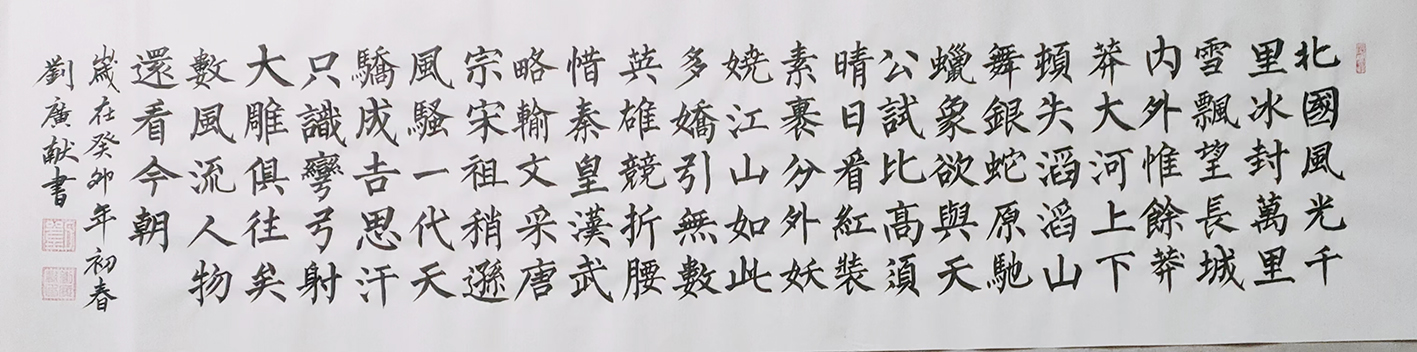 北國風光千
里冰封萬里
雪飄望長城
内外惟餘莽
莽大河上下
頓失滔滔山
舞銀蛇原馳
蠟象欲與天
公試比高須
晴日看紅裝
素裹分外妖
嬈江山如此
多嬌引無數
英雄競折腰
惜秦皇漢武
略輸文采唐
宗宋祖稍遜
風騷一代天
驕成吉思汗
只識彎弓射
大雕俱往矣
數風流人物
還看今朝
歲在癸卯年初春
劉廣献書